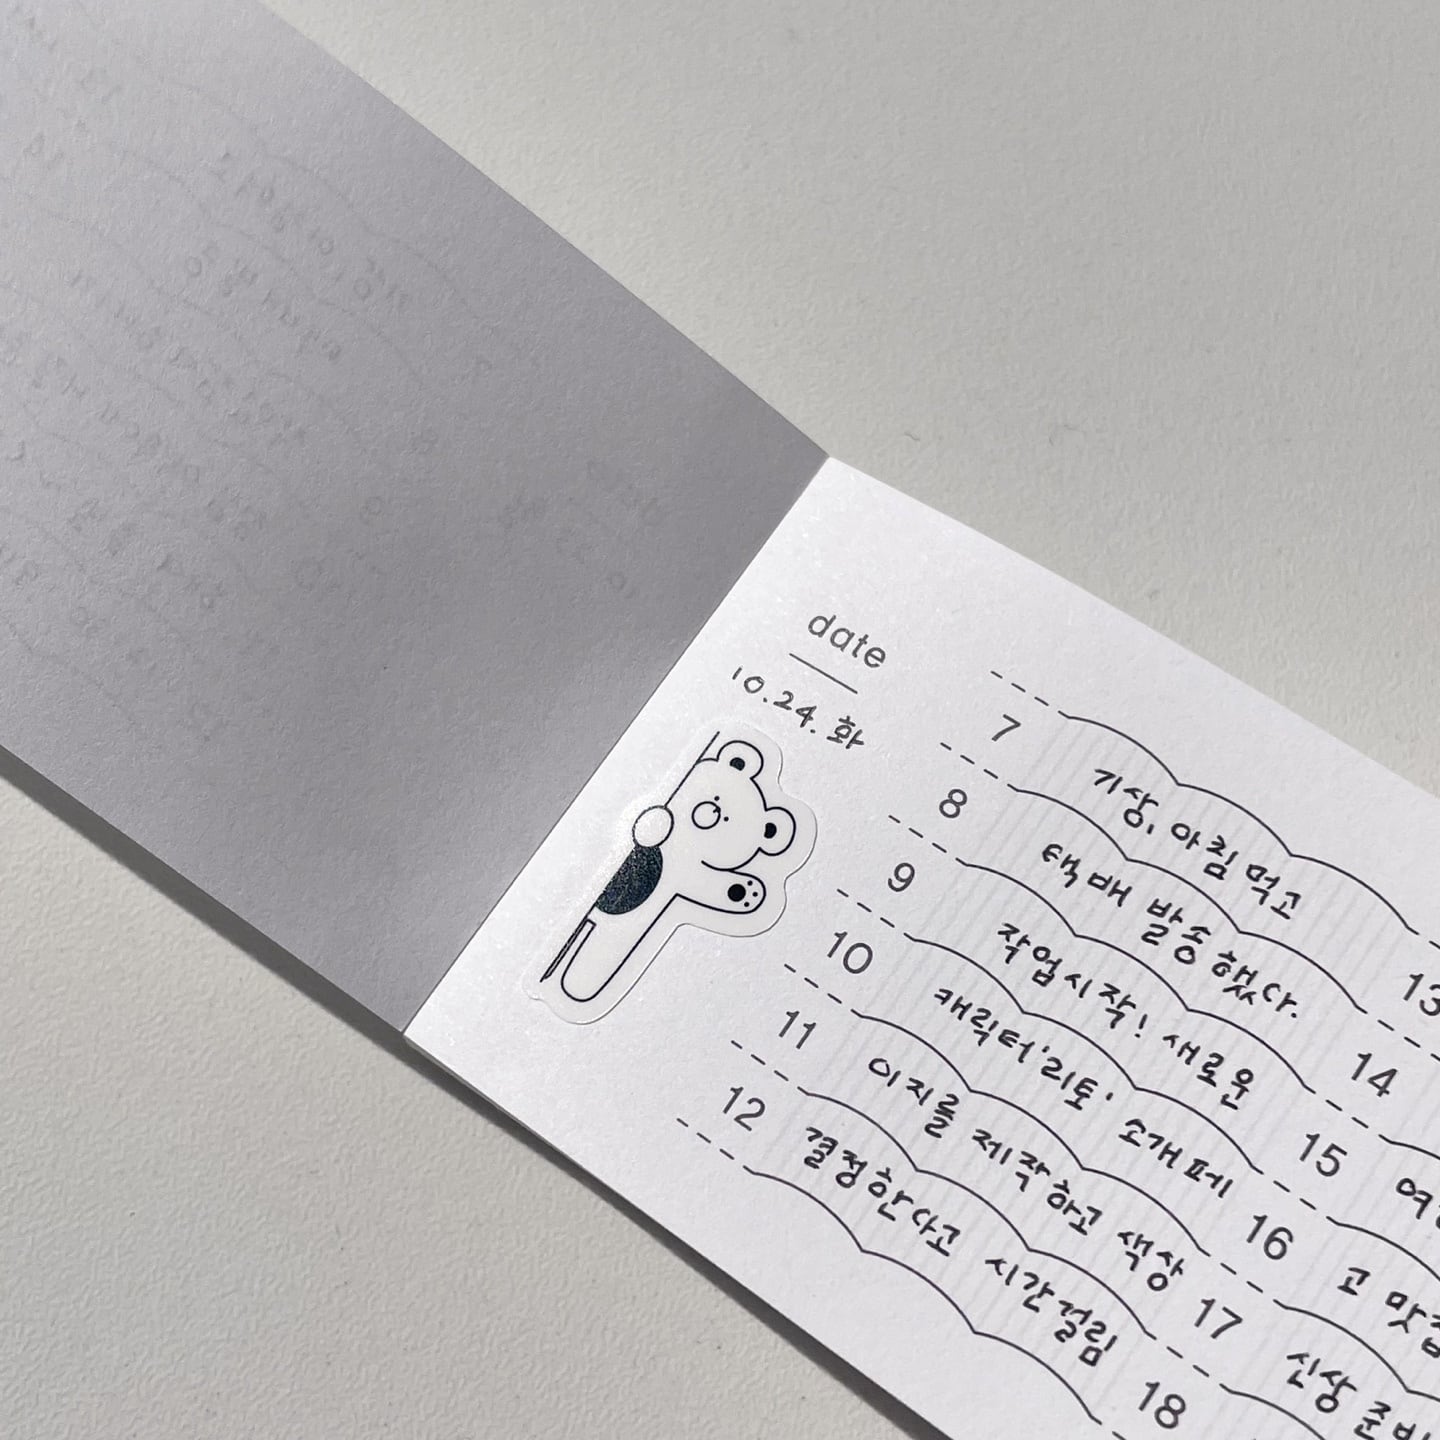 date
10.24.화
7 기상, 아침 먹고
8 택배 발송했다.
9 작업시작! 새로운
10 캐릭터 '리토' 소개 페
11 이지를 제작하고 색상
12 결정한다고 시간걸림
13
14
15
16 고
17 신상
18